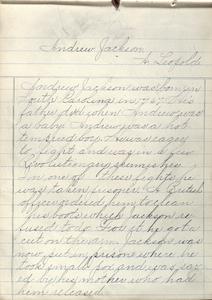 Andrew Jackson
A. Leopold
Andrew Jackson was born in
South Carolina in 1767. His
father died when Andrew was
a baby. Andrew was a hot
tempered boy. He was eager
to fight and was in a few
Revolutionary skirmishes.
In one of these fights he
was taken prisoner. A British
officer ordered him to clean
his boots which Jackson re-
fused to do. For it he got a
cut on the arm. Jackson was
now put in prison where he
took small pox and was sav-
ed by his mother who had
him released.